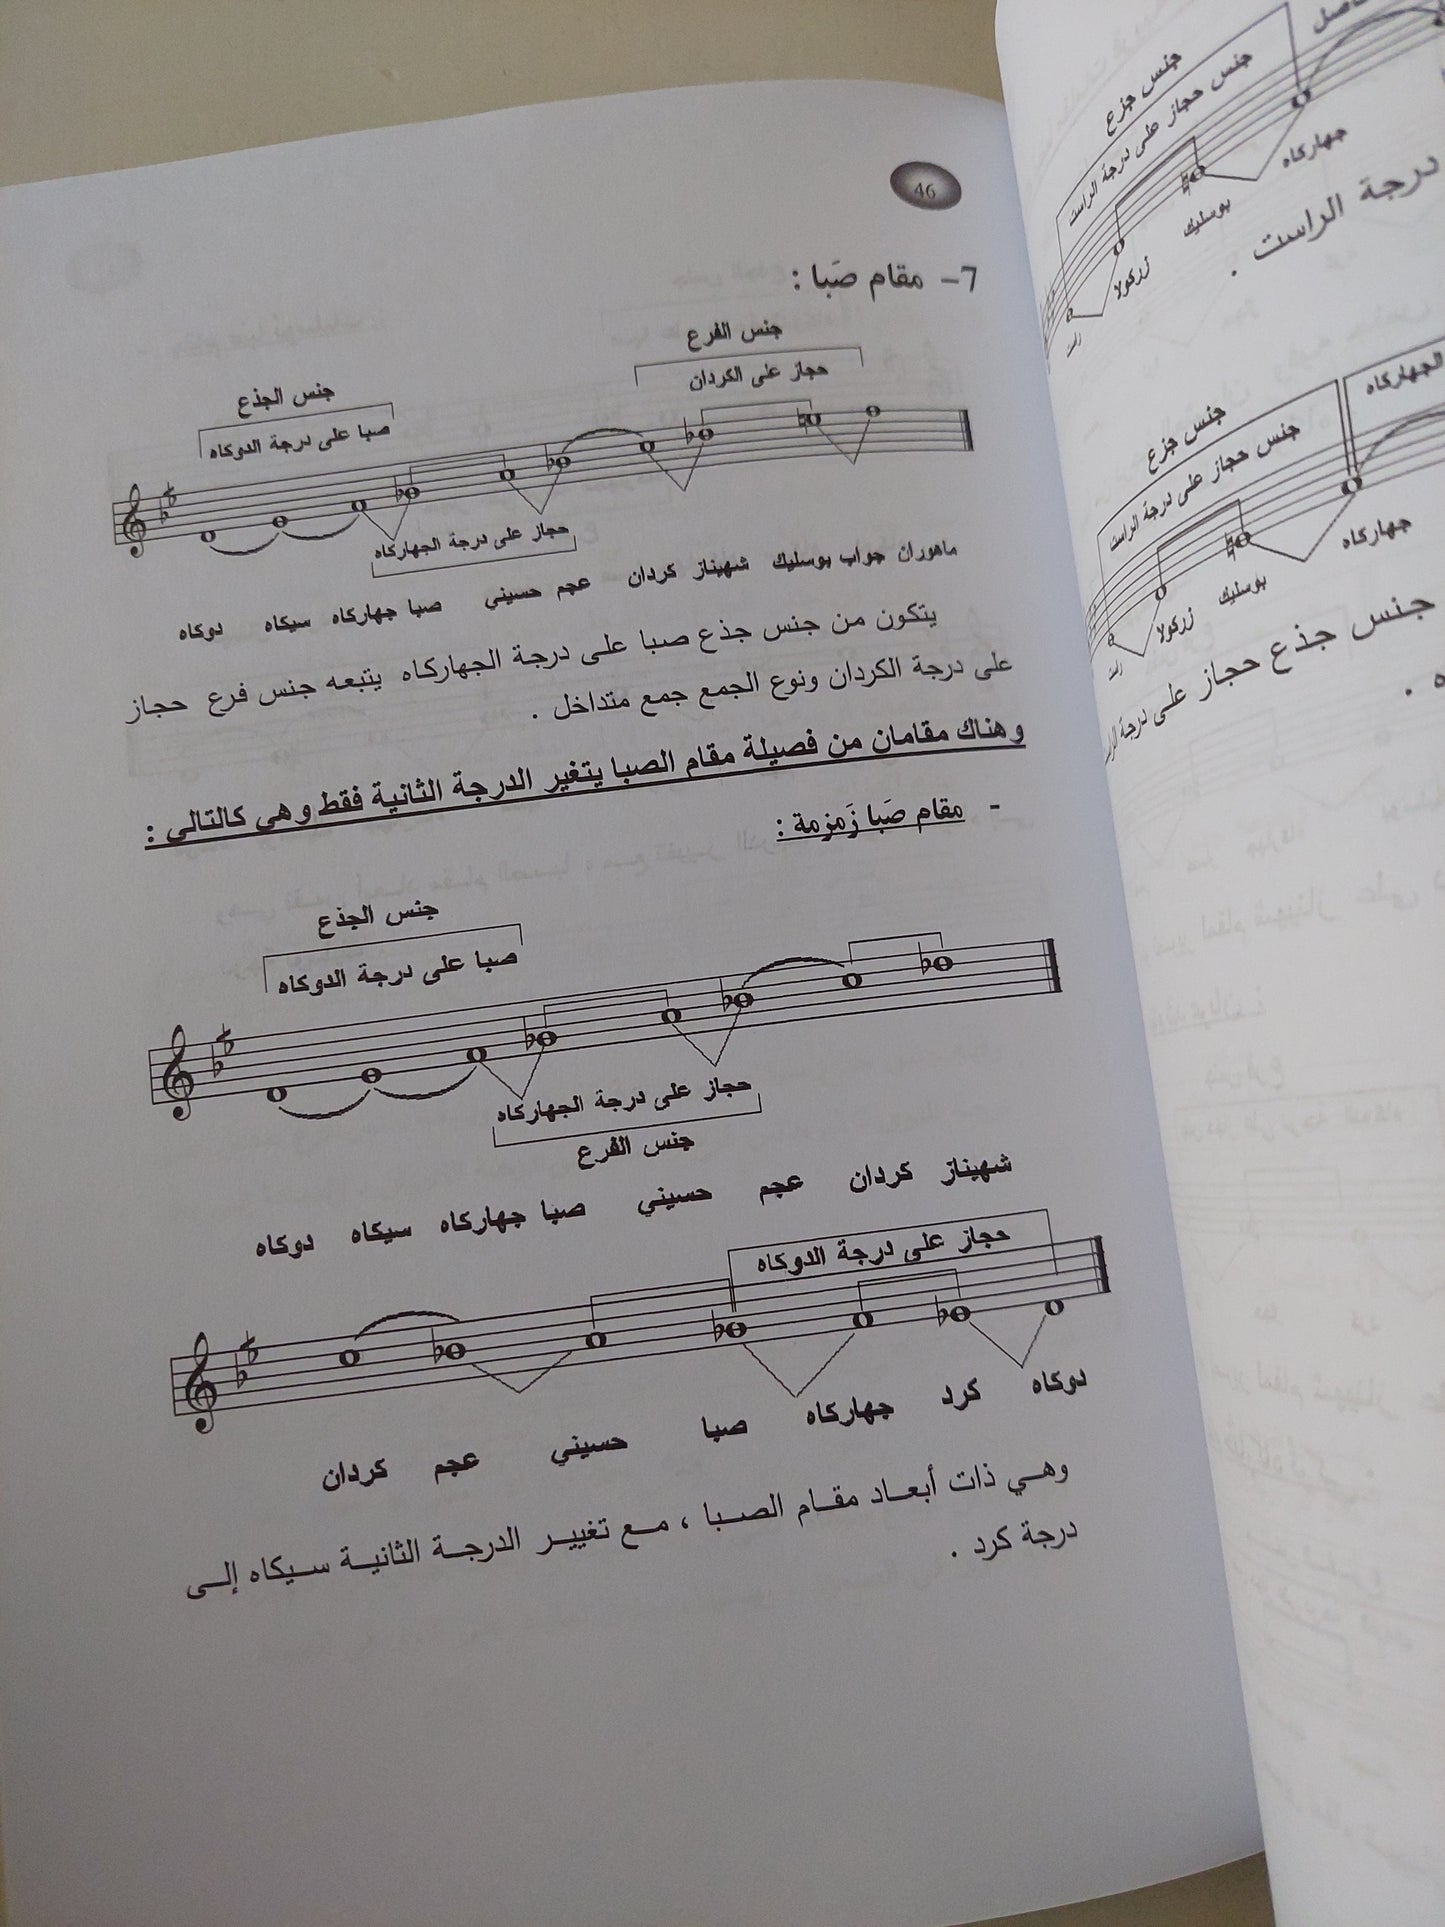 46
7- مقام صَبا :
جنس الفرع
حجاز على الكردان
جنس الجذع
صبا على درجة الدوكاه
حجاز على درجة الجهاركاه
دوكاه سيكاه جهاركاه صبا حسيني عجم كردان شهيناز جواب بوسليك ماهوران
يتكون من جنس جذع صبا على درجة الجهاركاه يتبعه جنس فرع حجاز
على درجة الكردان ونوع الجمع جمع متداخل .
وهناك مقامان من فصيلة مقام الصبا يتغير الدرجة الثانية فقط وهي كالتالي :
- مقام صَبا زَمزمة :
جنس الجذع
صبا على درجة الدوكاه
حجاز على درجة الجهاركاه
جنس الفرع
دوكاه سيكاه جهاركاه صبا حسيني عجم كردان شهيناز
حجاز على درجة الدوكاه
كردان عجم حسيني صبا جهاركاه كرد دوكاه
وهي ذات أبعاد مقام الصبا ، مع تغيير الدرجة الثانية سيكاه إلى
درجة كرد .
جنس جزع
جنس حجاز على درجة الراست
راست زركولا بوسليك جهاركاه
درجة الراست .
الجهاركاه
جنس جزع
جنس حجاز على درجة الراست
زركولا بوسليك جهاركاه
جنس جذع حجاز على درجة